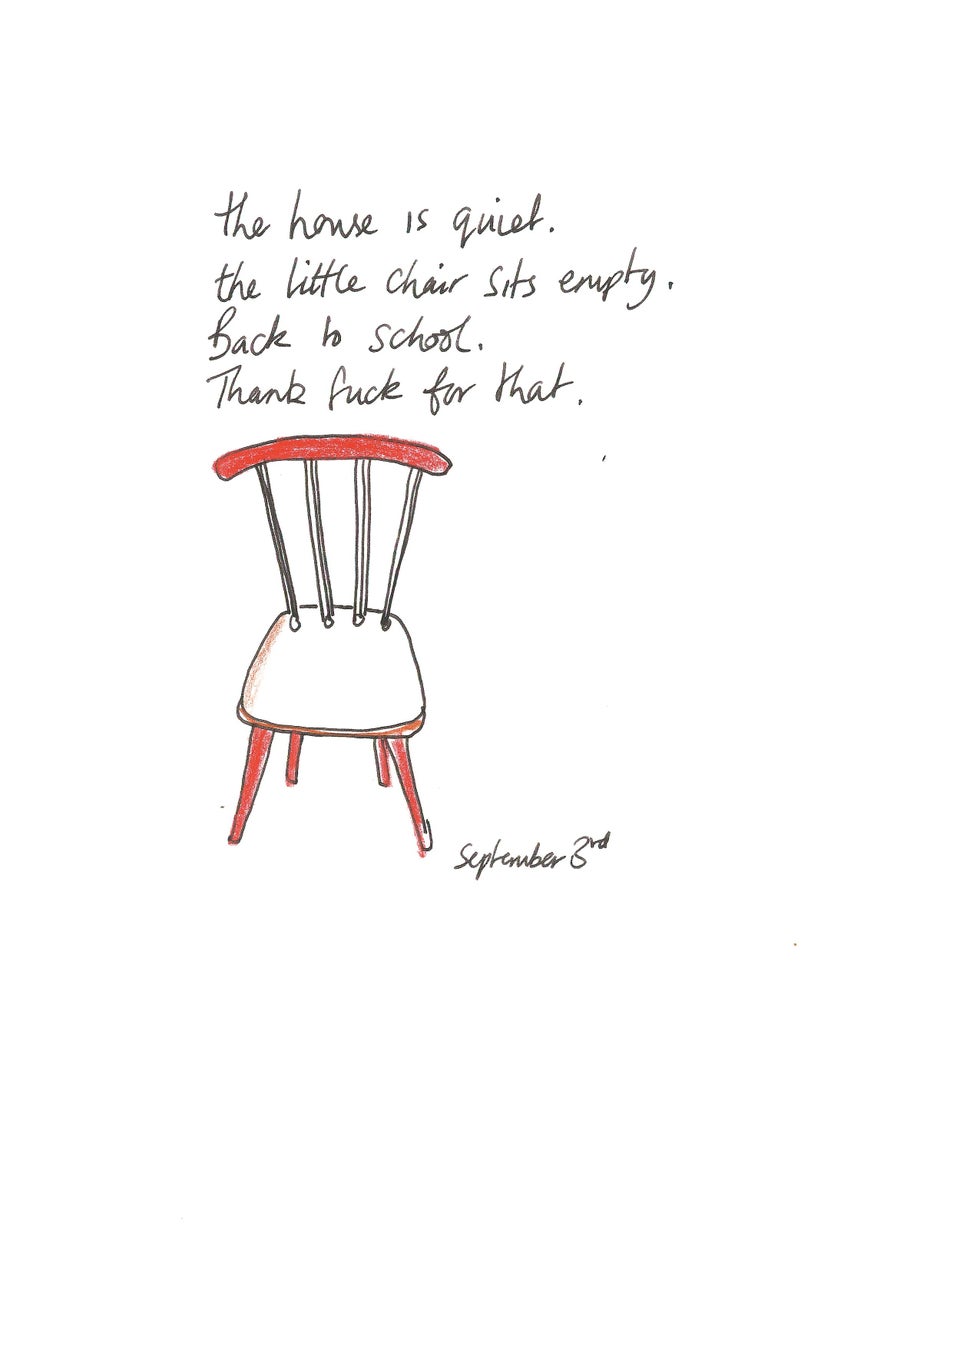 the house is quiet.
the little chair sits empty.
Back to school.
Thank fuck for that.
September 3rd